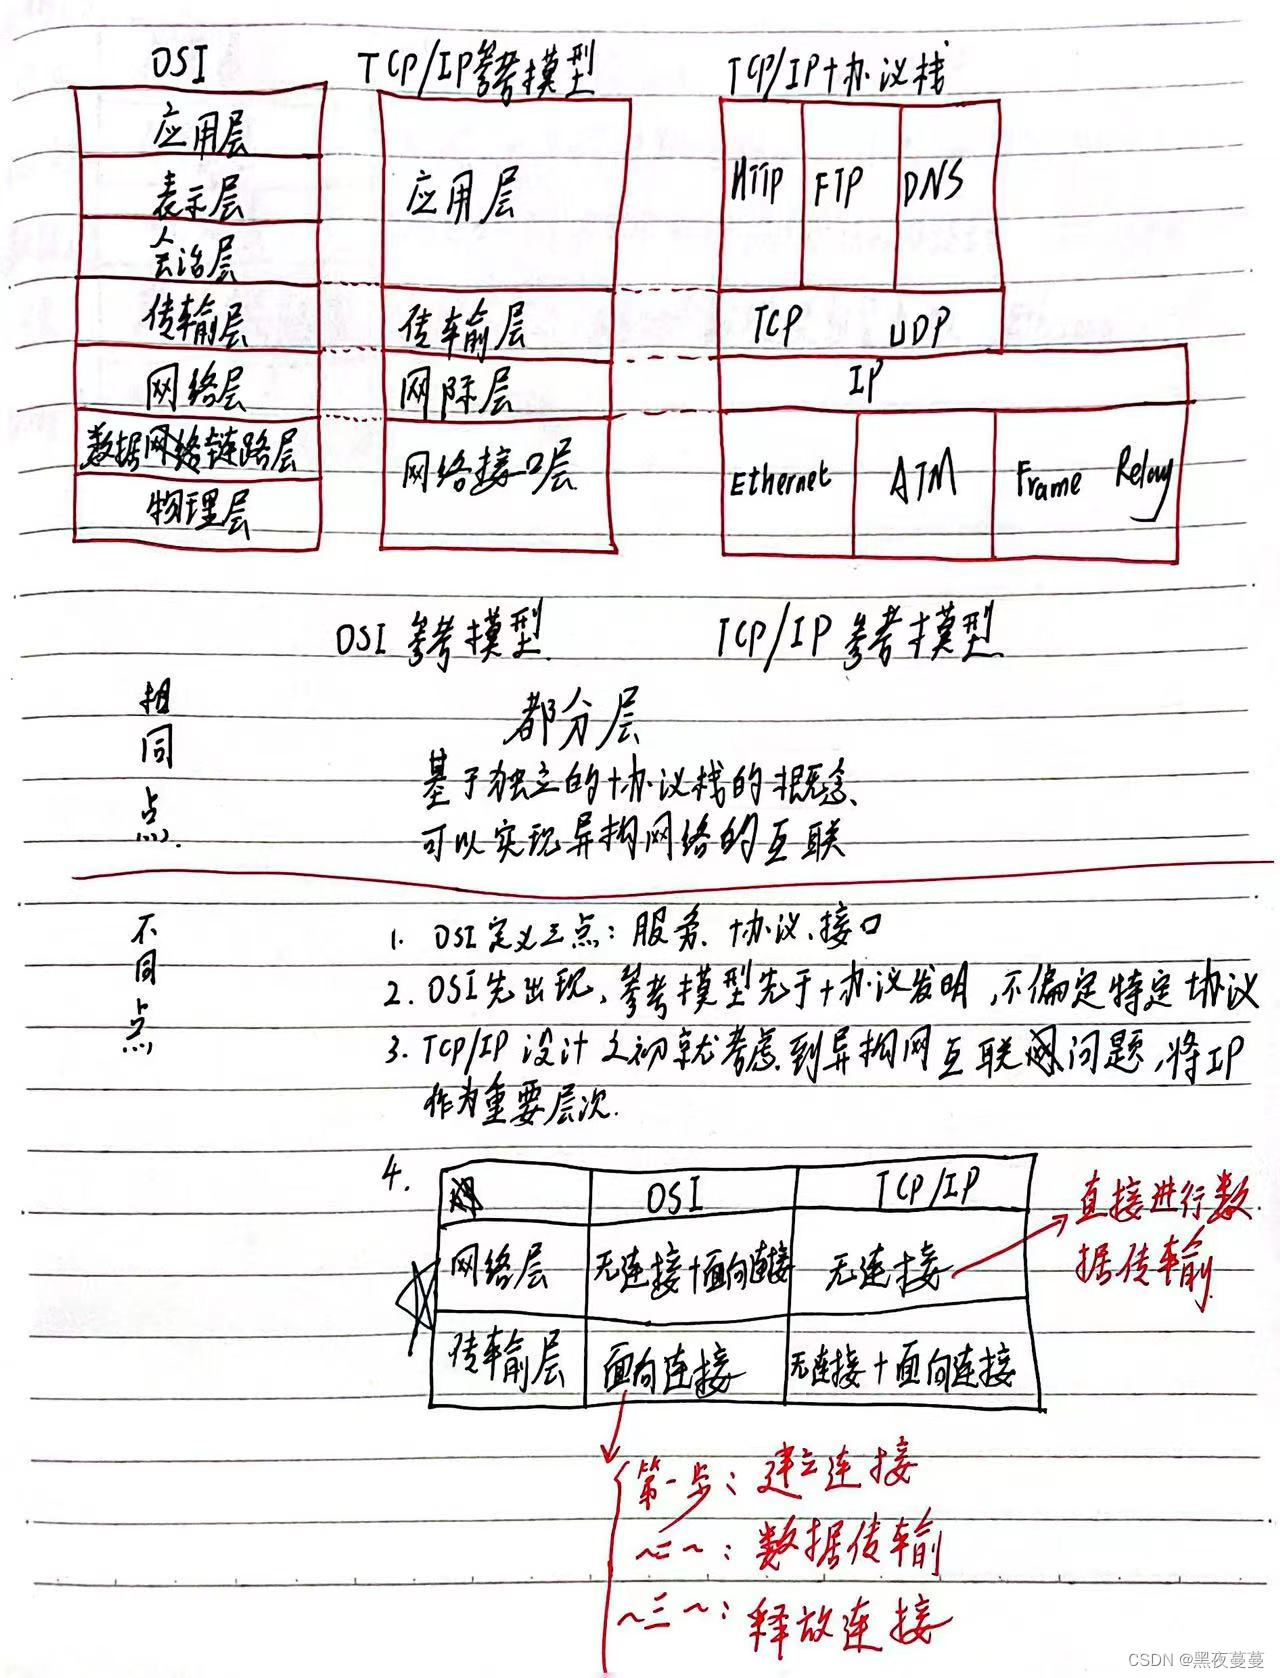 OSI TCP/IP参考模型 TCP/IP协议栈
应用层
表示层
会话层
应用层
HTTP FTP DNS
传输层 传输层 TCP UDP
网络层 网际层 IP
数据链路层
物理层
网络接口层
Ethernet ATM Frame Relay
OSI参考模型 TCP/IP参考模型
相同点
都分层
基于独立的协议栈的概念
可以实现异构网络的互联
不同点
1. OSI定义三点：服务、协议、接口
2. OSI先出现，参考模型先于协议发明，不偏定特定协议
3. TCP/IP设计之初就考虑到异构网互联问题，将IP
作为重要层次.
4.
OSI TCP/IP
网络层 无连接+面向连接 无连接
直接进行数
据传输
传输层 面向连接 无连接+面向连接
第一步：建立连接
~二~：数据传输
~三~：释放连接
CSDN @黑夜蔓蔓